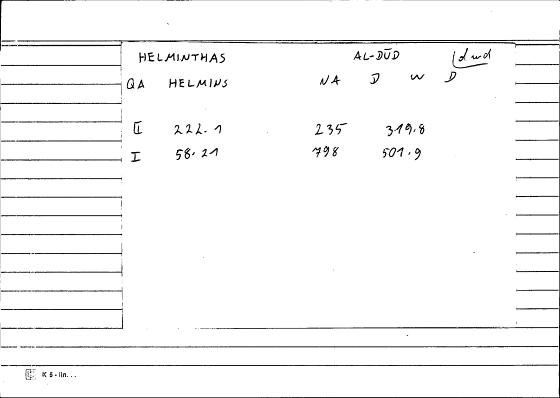 HELMINTHAS AL-DŪD dwd
QA HELMINS NA D W D
II 222.1 235 319.8
I 58.21 798 501.9
K 5 - lin...